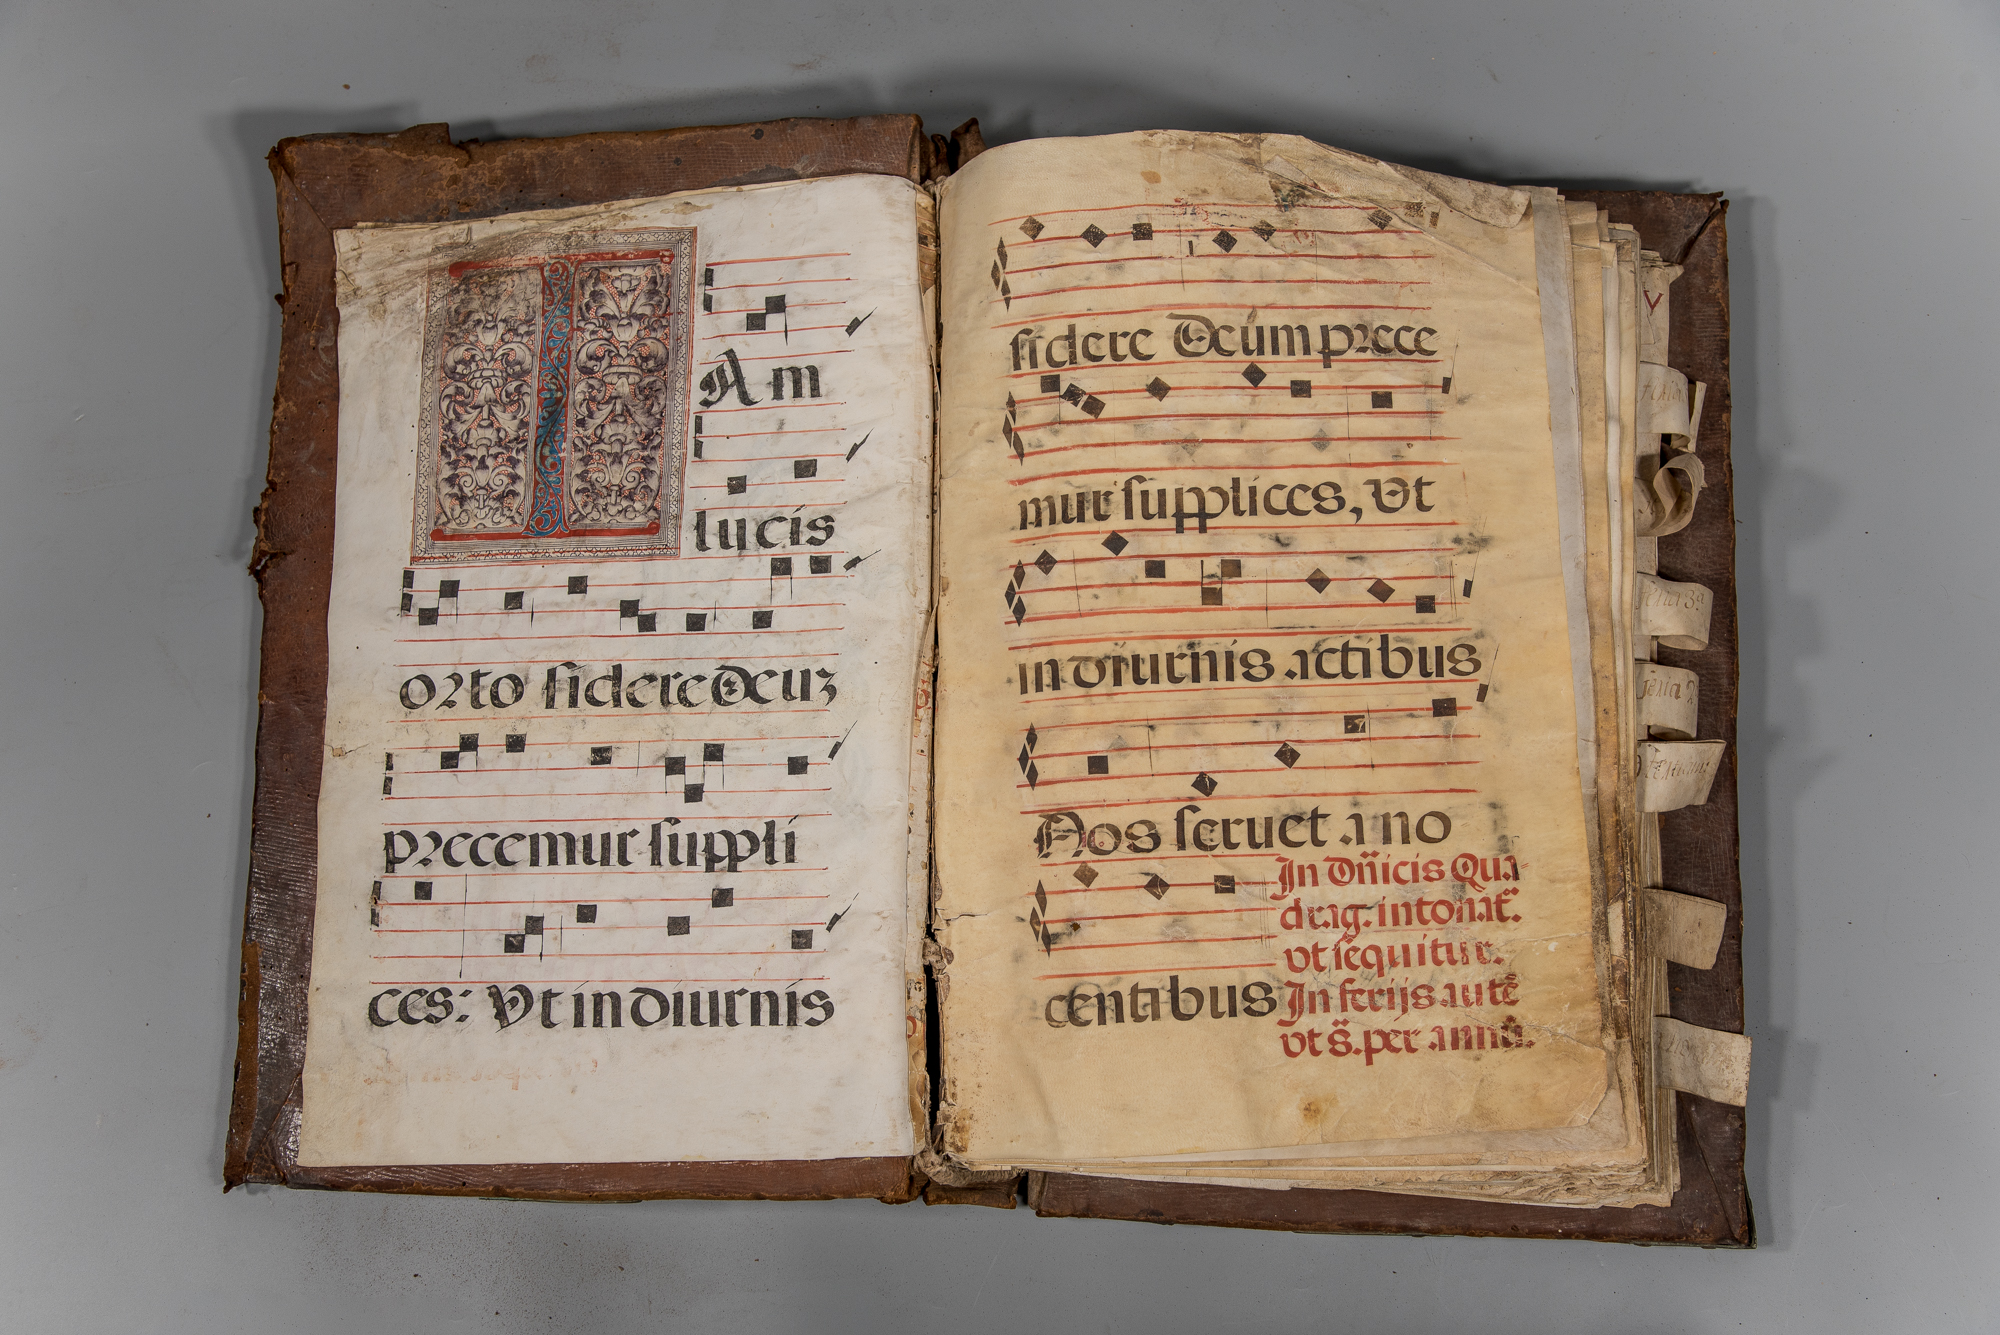 I
Am
lucis
orto sidere Deuʒ
precemur suppli
ces: Vt in diurnis
sidere Deúm prece
mur supplices, Vt
in diurnis actibus
Nos seruet a no
centibus
In Dn̄icis Qua-
drag. intonat̄.
vt sequitur.
In ferijs autē
vt S̄. per annū.
V
feria 3a
feria 2